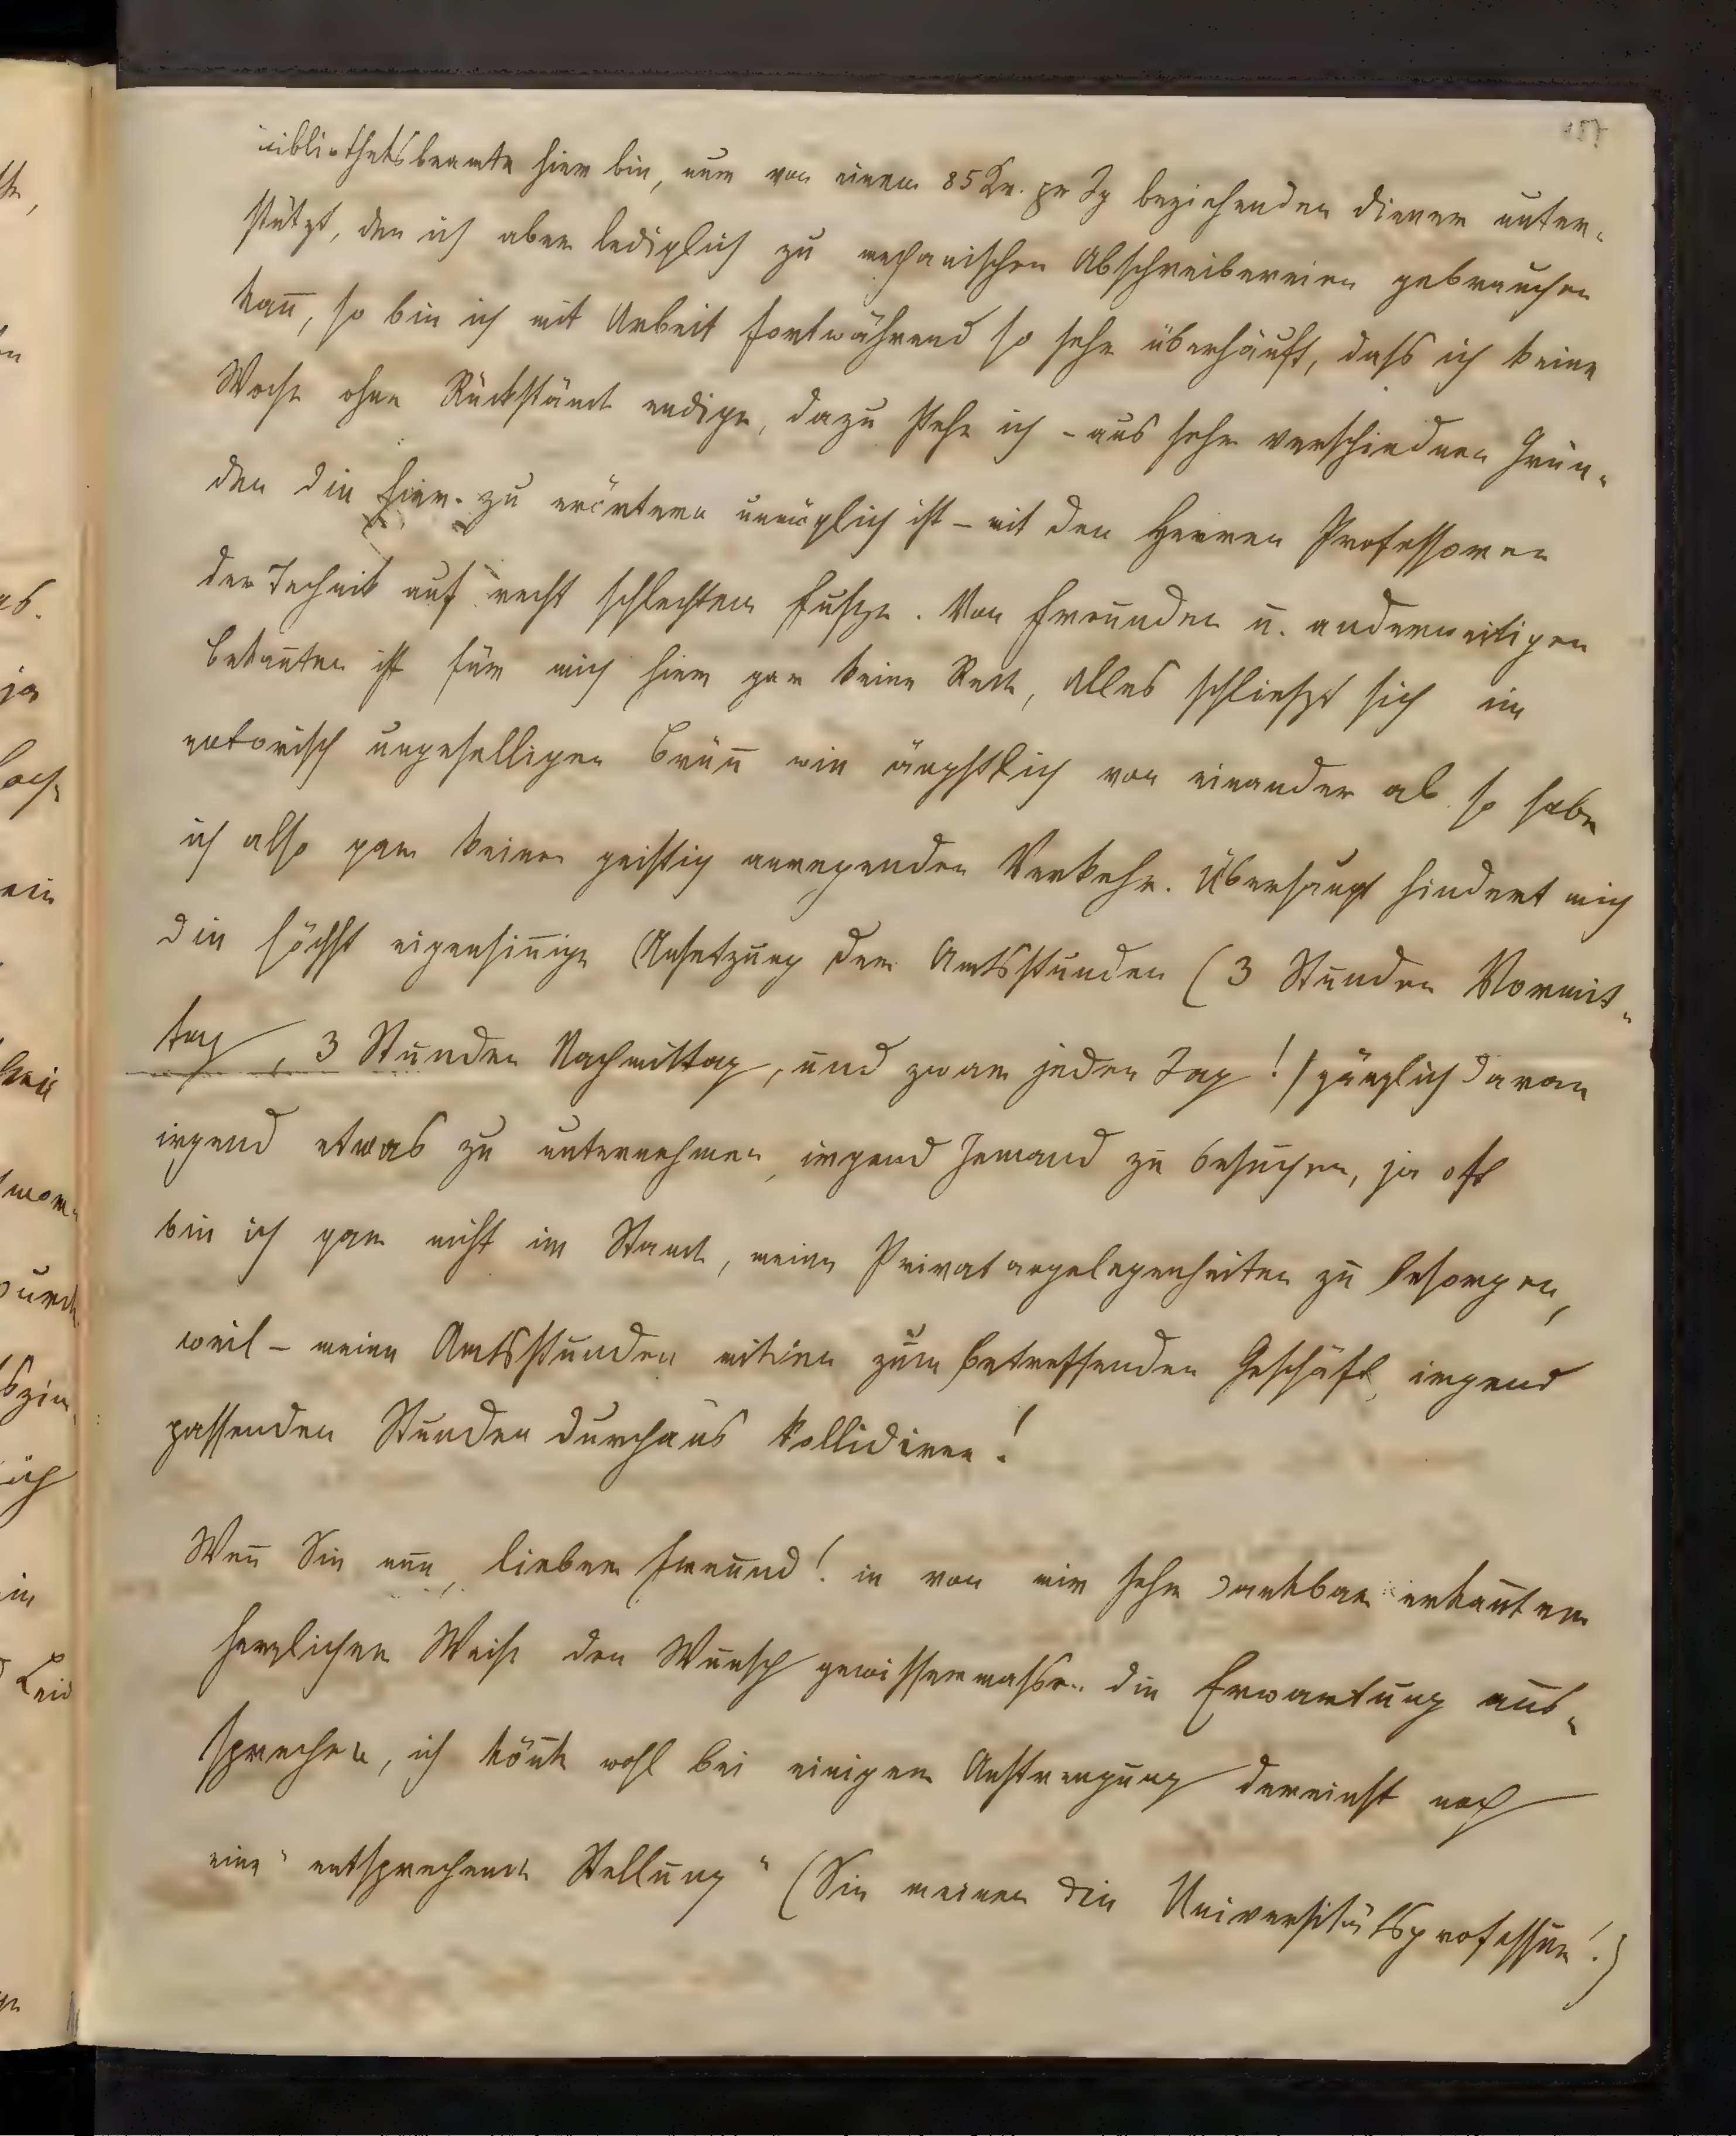 bibliotheksbeamte hier bin, nur von einem 85 Kr. pr Tg beziehenden Diener unter-
stützt, den ich aber lediglich zu mechanischen Abschreibereien gebrauchen
kañ, so bin ich mit Arbeit fortwährend so sehr überhäuft, dass ich keine
Woche ohne Rückstände endige, dazu stehe ich – aus sehr verschiednen Grün-
den die hier zu erörtern unmöglich ist – mit den Herren Professoren
der Technik auf recht schlechtem Fusze. Von Freunden u. anderweitigen
Bekañten ist für mich hier gar keine Rede, Alles schlieszt sich im
notorisch ungeselligen Brüñ wie ängstlich von einander ab so habe
ich also gar keinen geistig anregenden Verkehr. Überhaupt hindert mich
die höchst eigensiñige Ansetzung der Amtsstunden (3 Stunden Vormit-
tag, 3 Stunden Nachmittag, und zwar jeden Tag!) gänzlich daran
irgend etwas zu unternehmen, irgend Jemand zu besuchen, ja oft
bin ich gar nicht im Stande, meine Privatangelegenheiten zu besorgen,
weil – meine Amtsstunden mit den zum betreffenden Geschäft, irgend
passenden Stunden durchaus kollidiren!
Weñ Sie nun, lieber Freund! in von mir sehr dankbar erkañter
herzlicher Weise den Wunsch gewissermassen die Erwartung aus-
sprechen, ich köñte wohl bei einiger Anstrengung dereinst noch
eine "entsprechende Stellung" (Sie meinen die Universitätsprofessur!)